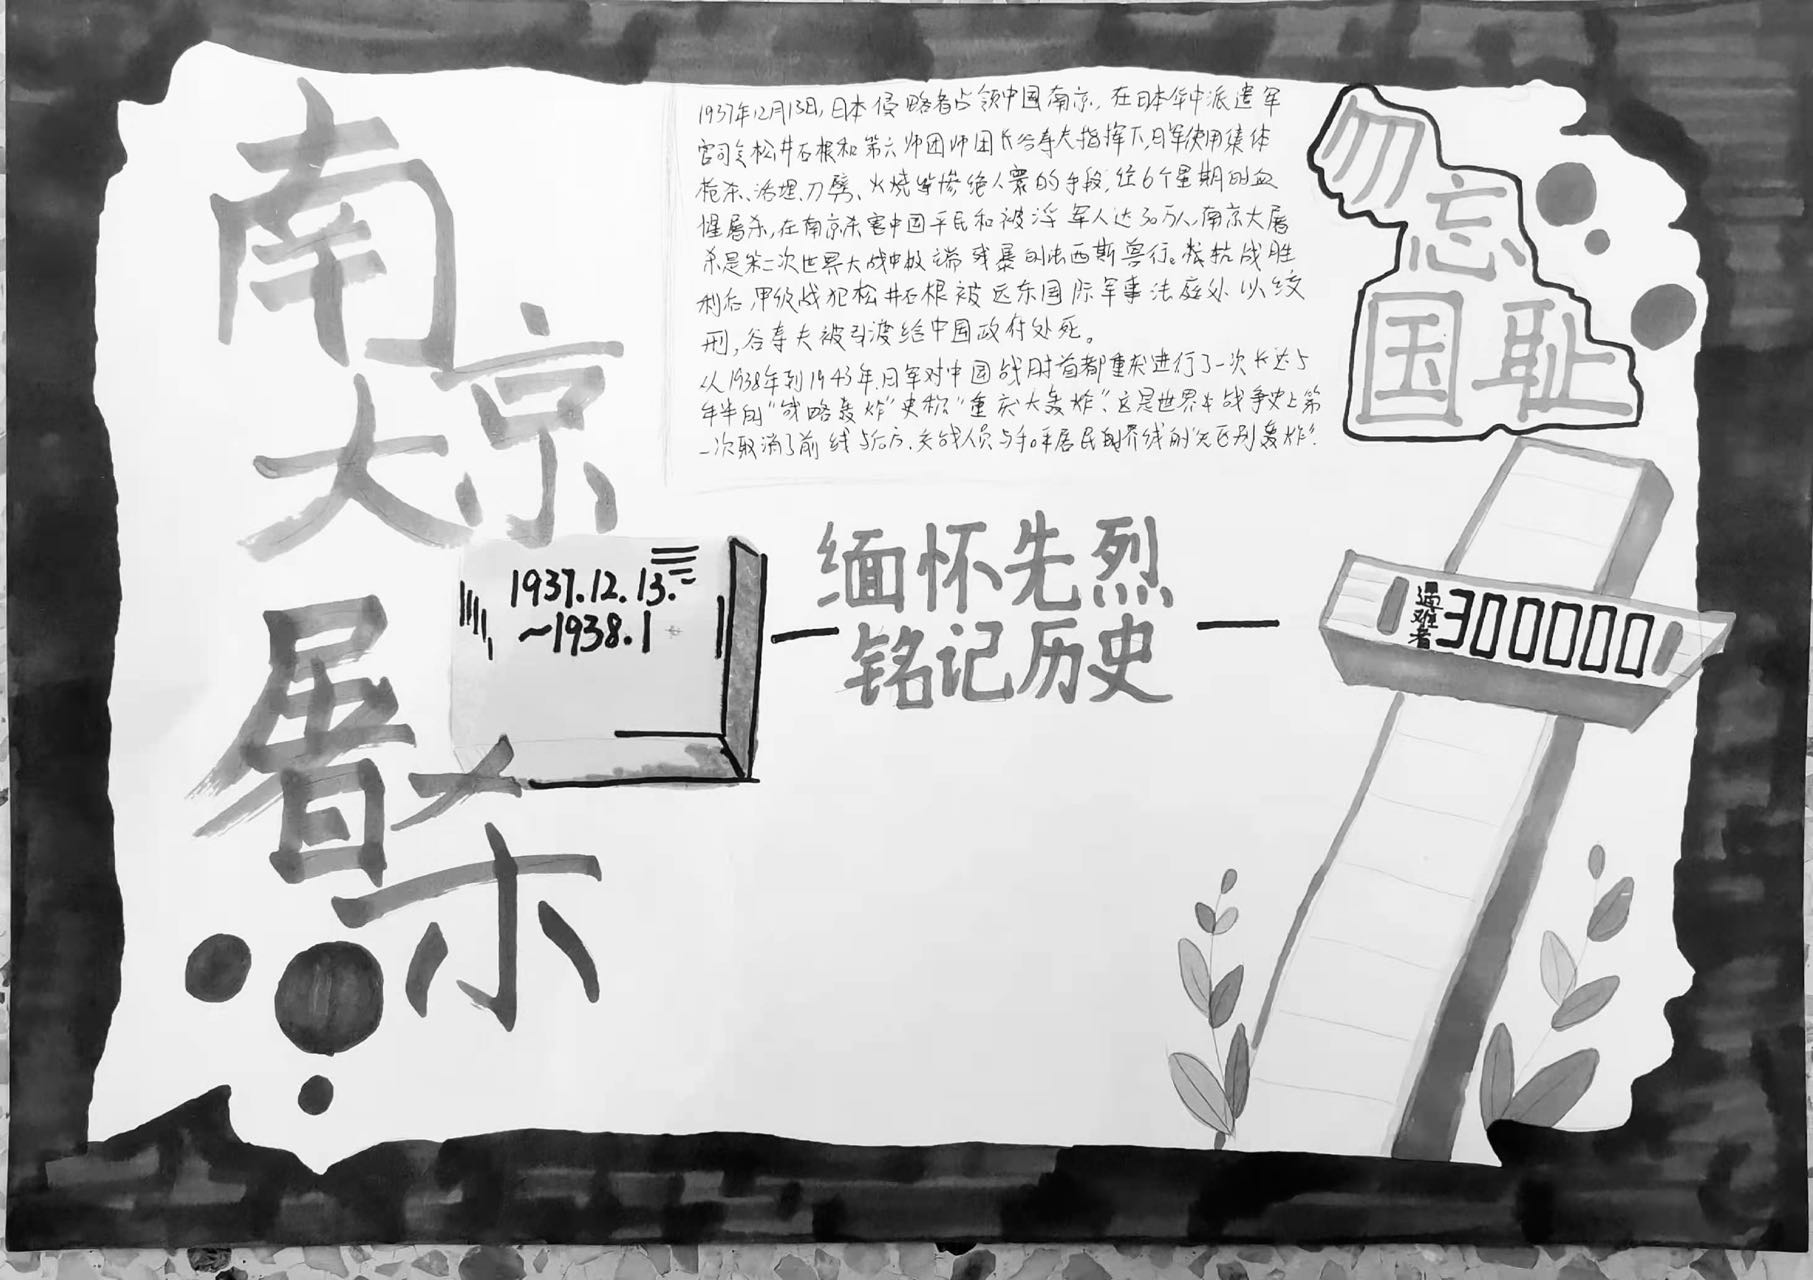 南京
大屠杀
1937年12月13日,日本侵略者占领中国南京,在日本华中派遣军
官司令松井石根和第六师团师团长谷寿夫指挥下,日军使用集体
枪杀、活埋、刀劈、火烧等惨绝人寰的手段,经6个星期的血
腥屠杀,在南京杀害中国平民和被浮军人达30万人,南京大屠
杀是第二次世界大战中极端残暴的法西斯兽行。抗战胜
利后,甲级战犯松井石根被远东国际军事法庭处以绞
刑,谷寿夫被引渡给中国政府处死。
从1938年到1943年,日军对中国战时首都重庆进行了一次长达5
年半的"战略轰炸"史称"重庆大轰炸",这是世界战争史上第
一次取消了前线与后方、交战人员与和平居民的界线的"无区别轰炸".
勿忘
国耻
1937.12.13.
~1938.1
缅怀先烈
铭记历史
遇难者 300000